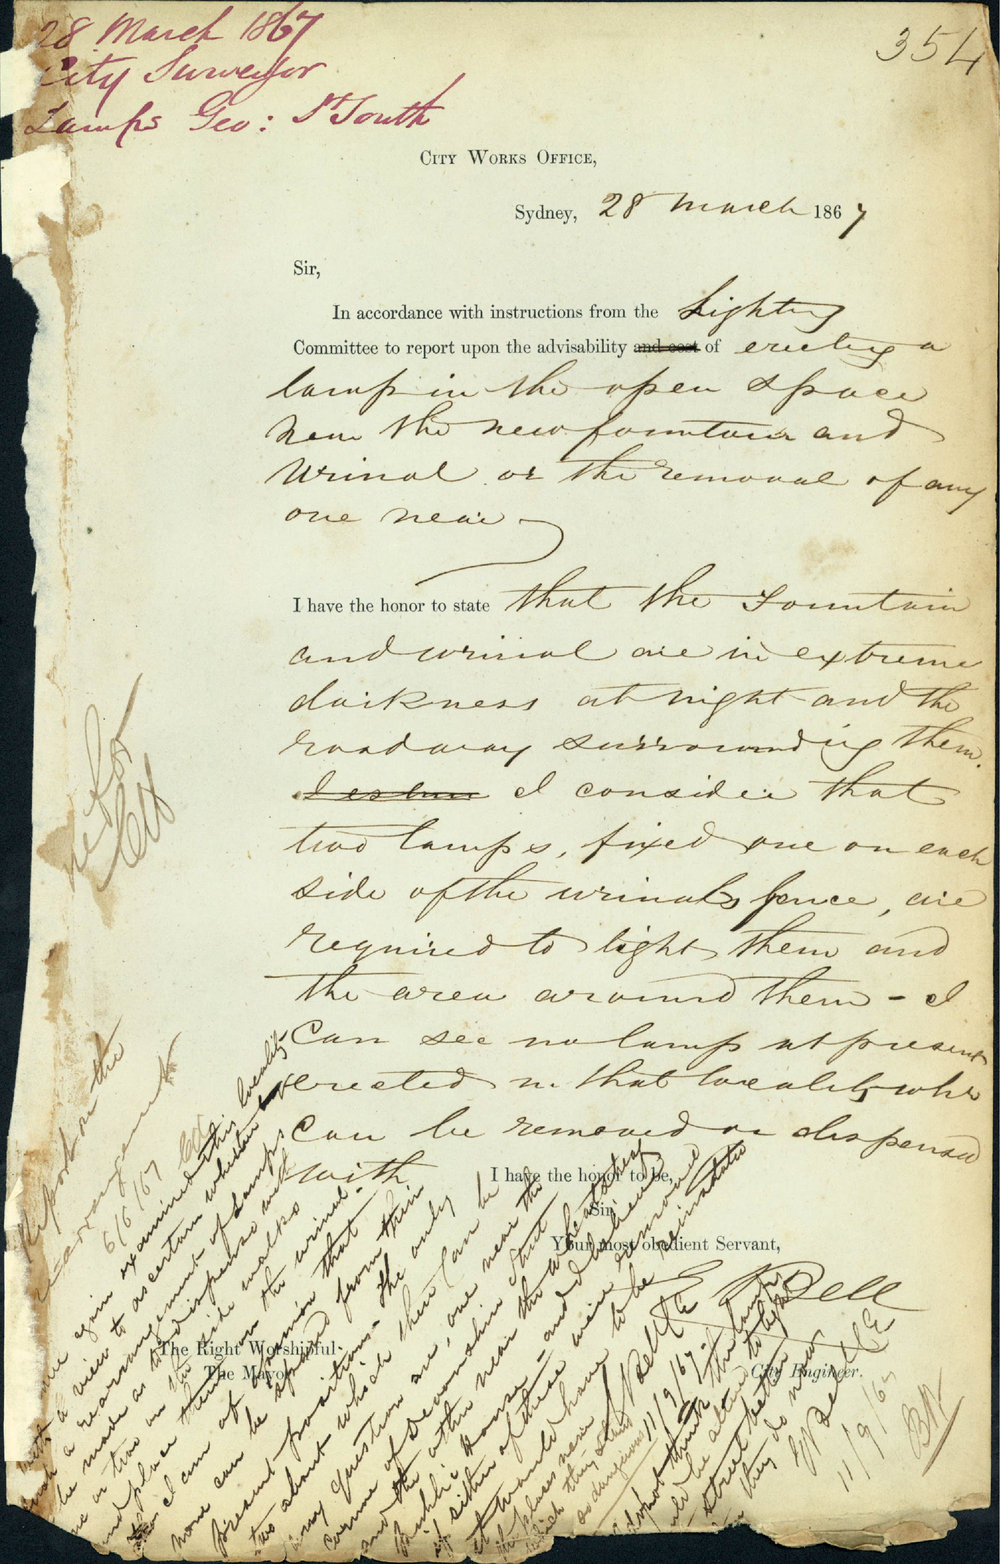 28 March 1867
City Surveyor
Lamps Geo: St South
354
City Works Office,
Sydney, 28 March 1867
Sir,
In accordance with instructions from the Lighting
Committee to report upon the advisability and cost of erecting a
lamp in the open space
near the new fountain and
Urinal or the removal of any
one near
I have the honor to state that the Fountain
and urinal are in extreme
darkness at night and the
roadway surrounding them.
I consider that
two lamps, fixed one on each
side of the urinals fence, are
required to light them and
the area around them - I
can see no lamp at present
erected in that locality whi
can be removed or dispensed
with
I have the honor to be,
Sir,
Your most obedient Servant,
E Bell
City Engineer.
The Right Worshipful
The Mayor
Report on the
rearrangement
6/6/67
again examined this locality
a view to ascertain whether
a rearrangement of lamps
be made as to dispense with
or two in the side walks
and place them on the urinal
I am of opinion that
none can be spared from their
present positions - the only
two about which there can be
any question are, one near the
corner of Devonshire Street
and the other near the
Public House - and I believe
if either of these were removed
it would have to be reinstated
E Bell CE
11/9/67
I do not think the lamps
could be altered to light
street better than
they do now
E Bell CE
11/9/67